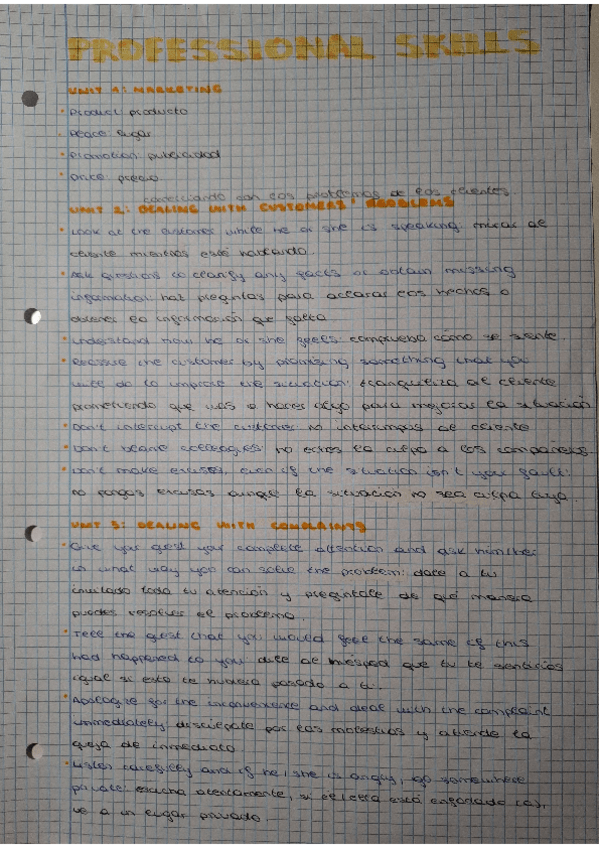 PROFESSIONAL SKILLS
UNIT 1: MARKETING
Product: producto
Place: lugar
Promotion: publicidad
Price: precio
comerciando con los problemas de los clientes.
UNIT 2: DEALING WITH CUSTOMERS' PROBLEMS
Look at the customer while he or she is speaking: mirar al
cliente mientras está hablando.
Ask questions to clarify any facts or obtain missing
information: haz preguntas para aclarar los hechos o
obtener la información que falta
Understand how he or she feels: comprueba cómo se siente.
the customer by promising something that you
will do to improve the situation: tranquiliza al cliente
prometiendo que vas a hacer algo para mejorar la situación
Don't interrupt the customer: no interrumpas al cliente
Don't blame colleagues: no eches la culpa a los compañeros.
Don't make excuses, even if the situation isn't your fault:
no pongas excusas aunque la situación no sea culpa tuya.
UNIT 3: DEALING WITH COMPLAINTS
Give your guest your complete attention and ask him/her
in what way you can solve the problem: dale a tu
invitado toda tu atención y pregúntale de qué manera
puedes resolver el problema.
Tell the guest that you would feel the same if this
had happened to you: dile al huésped que tu te sentirías
igual si esto te hubiera pasado a ti.
Apologize for the inconvenience and deal with the complaint
immediately: discúlpate por las molestias y atiende la
queja de inmediato.
Listen carefully and if he/she is angry, go somewhere
private: escucha atentamente, si el/ella está enfadado (a),
ve a un lugar privado.